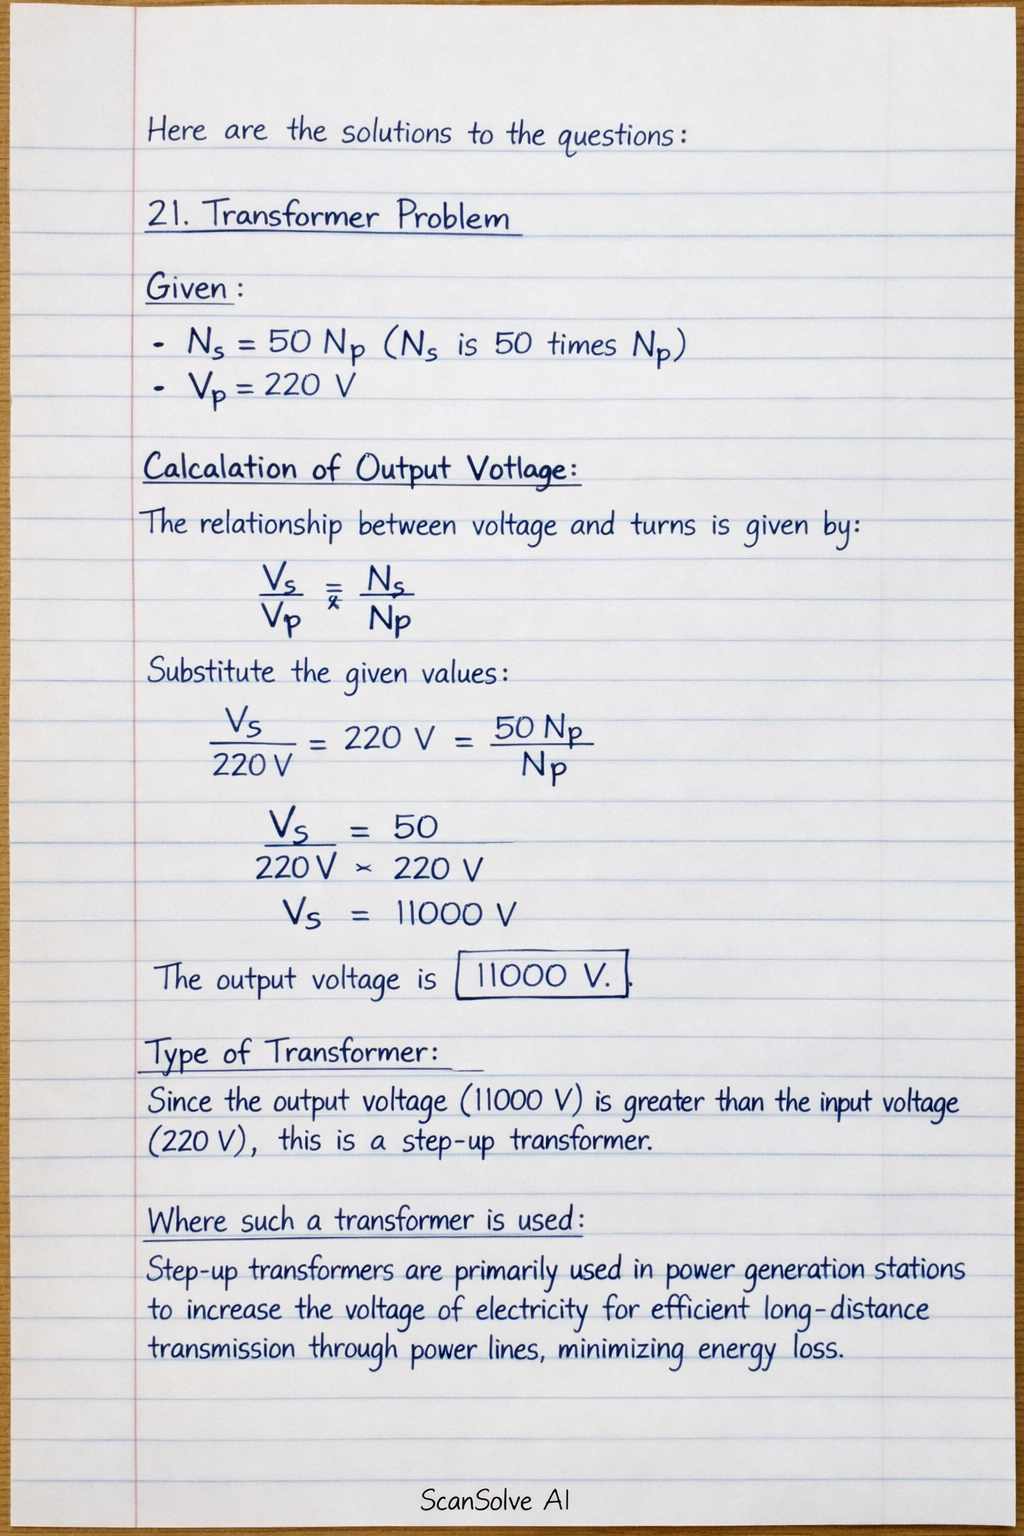 Here are the solutions to the questions:
21. Transformer Problem
Given:
- Ns = 50 Np (Ns is 50 times Np)
- Vp = 220 V
Calcalation of Output Votlage:
The relationship between voltage and turns is given by:
Vs/Vp = Ns/Np
Substitute the given values:
Vs/220 V = 220 V = 50 Np/Np
Vs = 50
220 V × 220 V
Vs = 11000 V
The output voltage is 11000 V..
Type of Transformer:
Since the output voltage (11000 V) is greater than the input voltage
(220 V), this is a step-up transformer.
Where such a transformer is used:
Step-up transformers are primarily used in power generation stations
to increase the voltage of electricity for efficient long-distance
transmission through power lines, minimizing energy loss.
ScanSolve AI